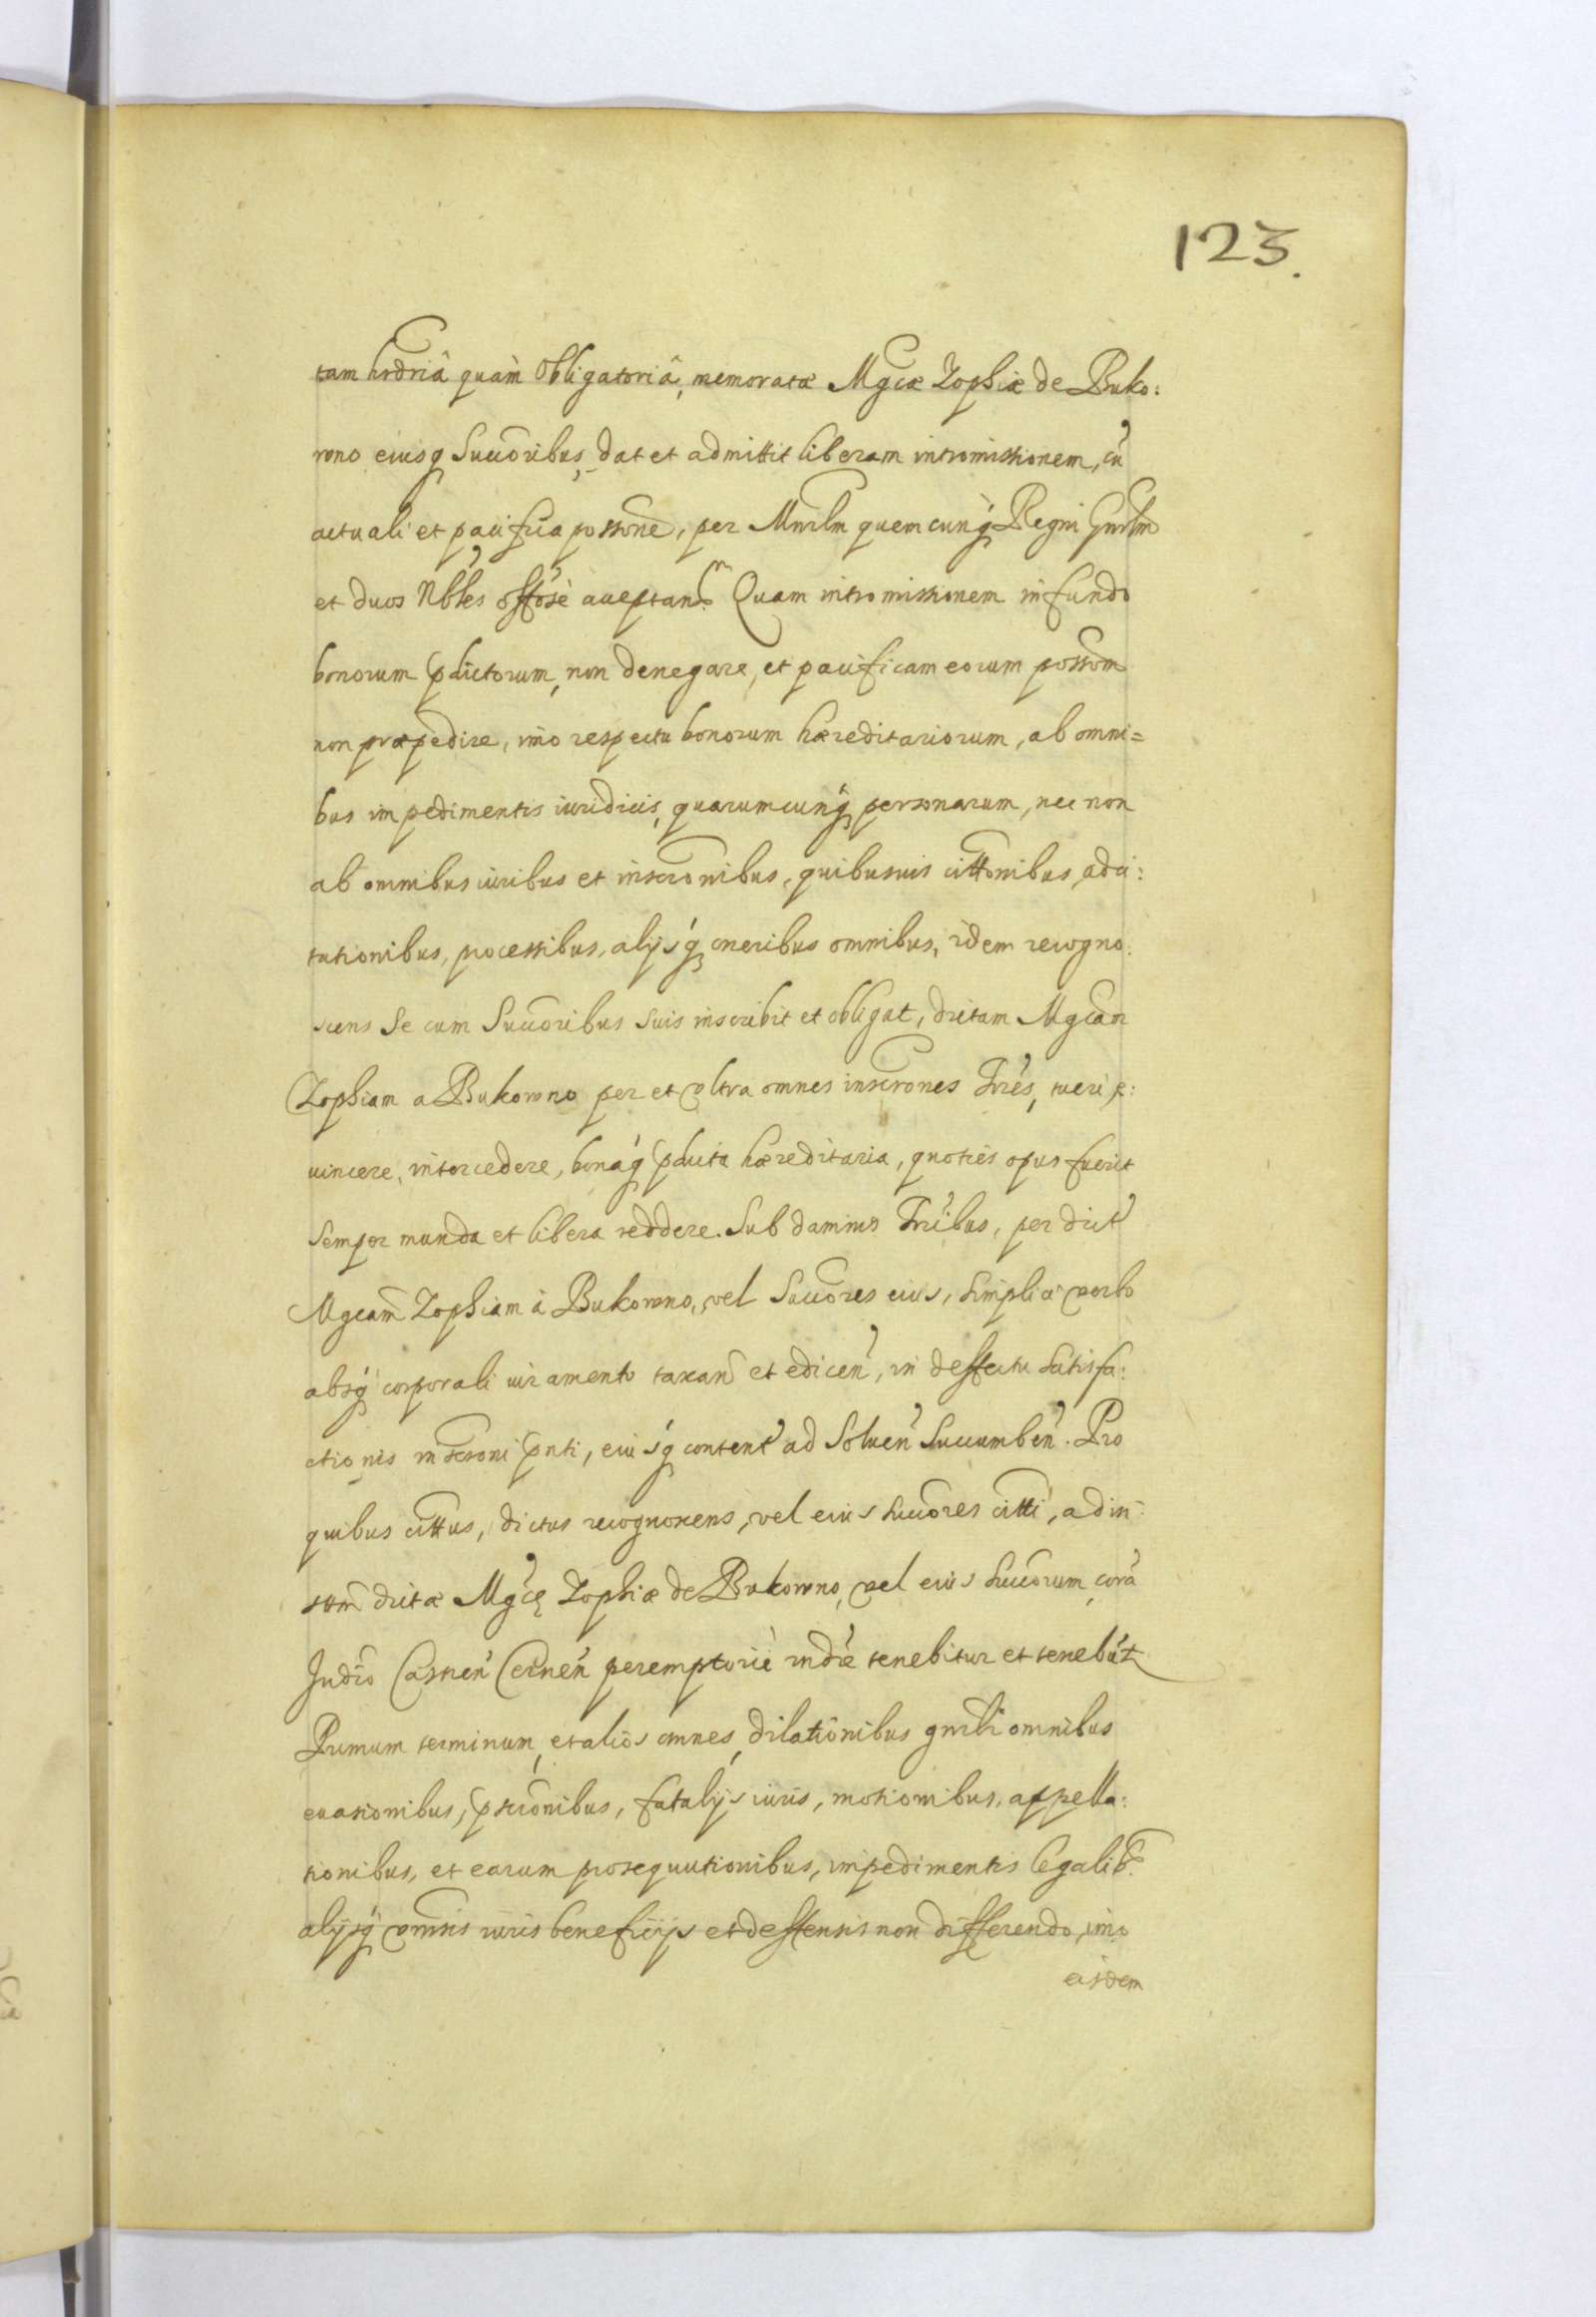 123.
tam hrdriâ quàm Obligatoriâ, memoratæ Mgcæ Zophiæ de Buko:
wno eiusq Succoribus, dat et admittit liberam intromissionem, cũ
actuali et pacifica possone, per Mnrlm quemcunq Regni Gnrlm
et duos Nbles offose acceptand. Quam intromissionem in fundo
bonorum pdictorum, non denegare, et pacificam eorum possom
non præpedire, imo respectu bonorum hæreditariorum, ab omni=
bus impedimentis iuridicis, quarumcunq personarum, nec non
ab omnibus iuribus et inscronibus, quibusuis cittonibus, adci:
tationibus, processibus, alijsq oneribus omnibus, idem recogno:
scens Se cum Succoribus suis inscribit et obligat, dictam Mgcam
Zophiam a Bukowno per et vltra omnes inscrones Trres, tueri, e:
uincere, intercedere, bonaq pdicta hæreditaria, quoties opus fuerit
semper munda et libera reddere. Sub damnis Trribus, per dict
Mgcam Zophiam à Bukowno, vel Succores eius, simplici verbo
absq corporali iuramento taxan et edicen, in deffectu satisfa:
ctionis inscroni pnti, eiusq content ad Soluen Succumben. Pro
quibus cittus, dictus recognoscens, vel eius succores citti, ad in:
stm dictæ Mgcę Zophiæ de Bukowno, vel eius succorum, corã
Judio Castren Crcnen peremptoriè rndre tenebitur et tenebut
Primum terminum, et alios omnes, dilationibus gnrli omnibus
euasionibus, pscronibus, fatalijs iuris, motionibus, appella:
tionibus, et earum prosequutionibus, impedimentis legalib.
alijsq omnis iuris beneficijs et deffensis non differendo, imo
eisdem